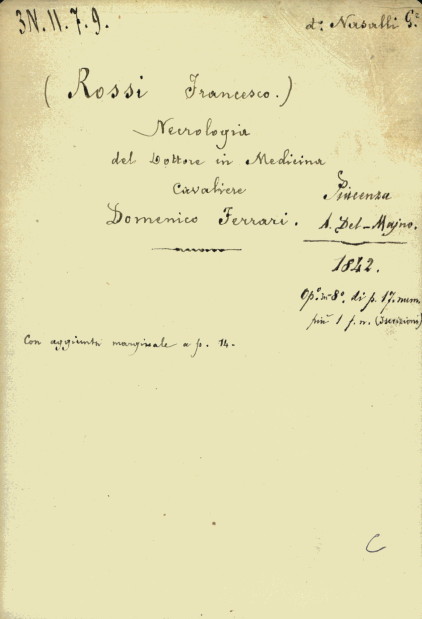 3N.11.7.9.
d. Nasalli G.
( Rossi Francesco. )
Necrologia
del Dottore in Medicina
Cavaliere
Domenico Ferrari.
Piacenza
A. Del-Majno.
1842.
Op.º in 8º. di p. 17. num.
più 1 f. n. (Iscrizioni)
Con aggiunta marginale a p. 14.
C